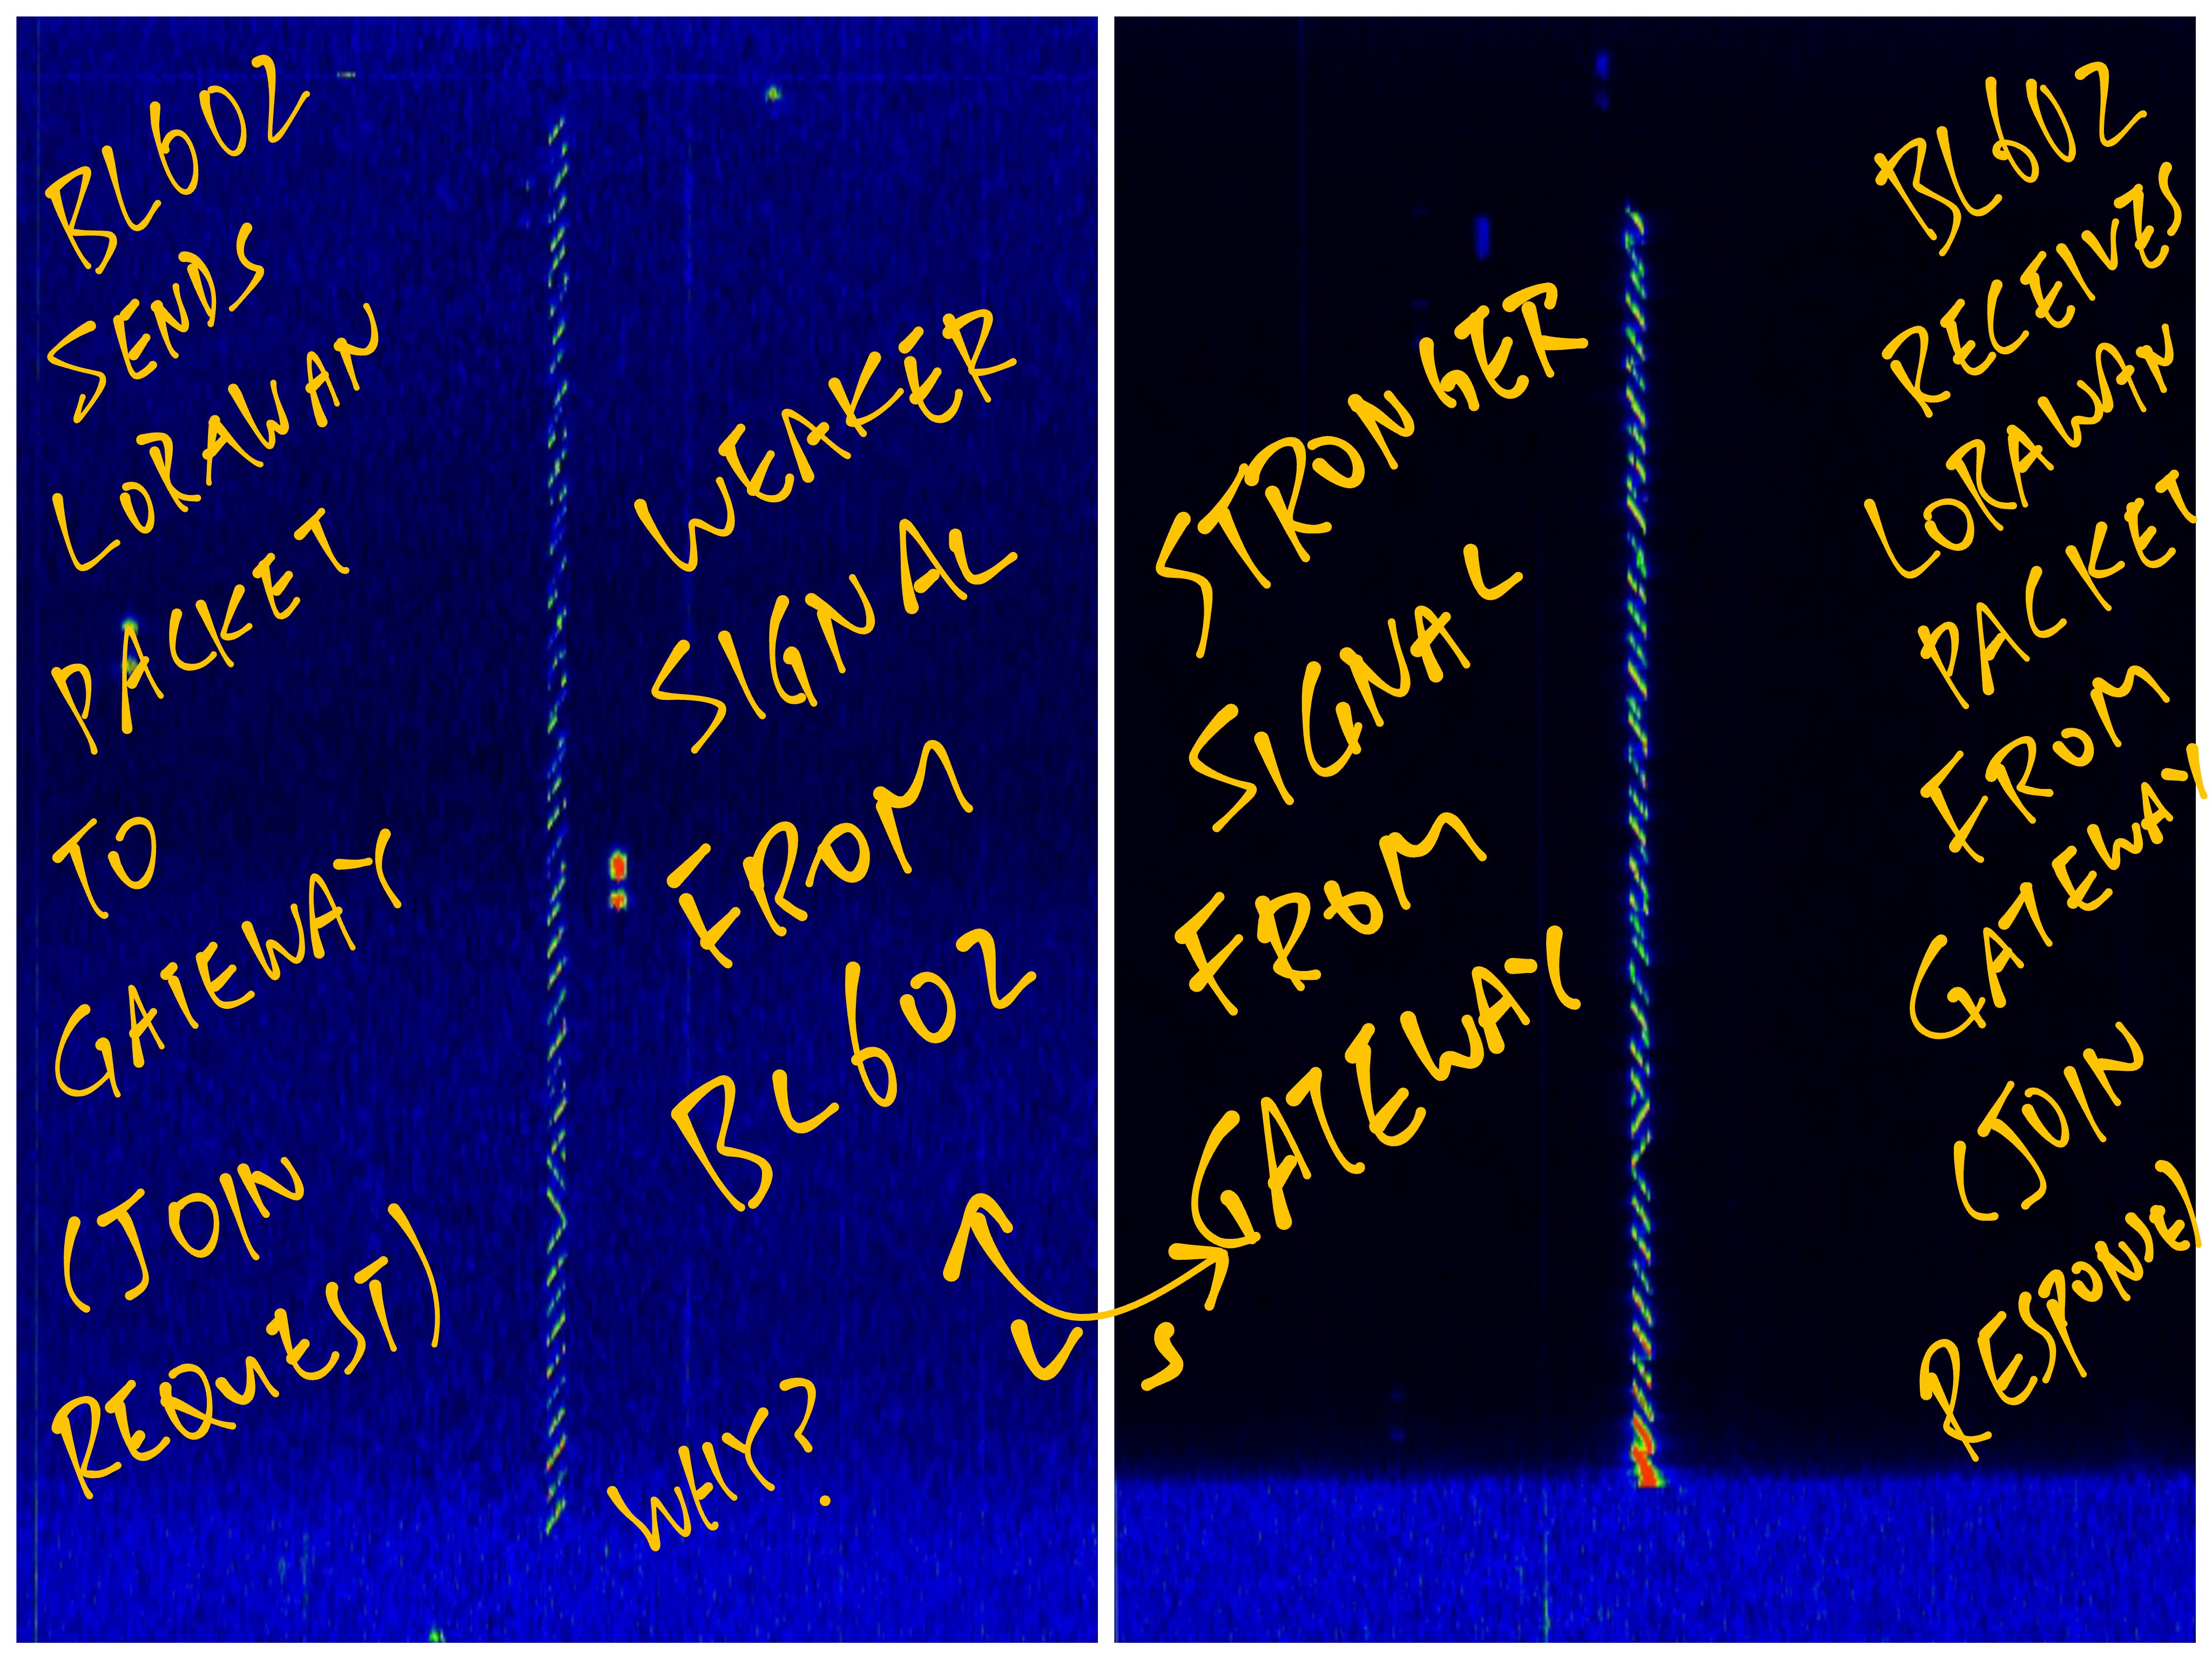 BL602
SENDS
LORAWAN
PACKET
TO
GATEWAY
(JOIN
REQUEST)
WEAKER
SIGNAL
FROM
BL602
WHY?
VS
STRONGER
SIGNAL
FROM
GATEWAY
BL602
RECEIVES
LORAWAN
PACKET
FROM
GATEWAY
(JOIN
RESPONSE)